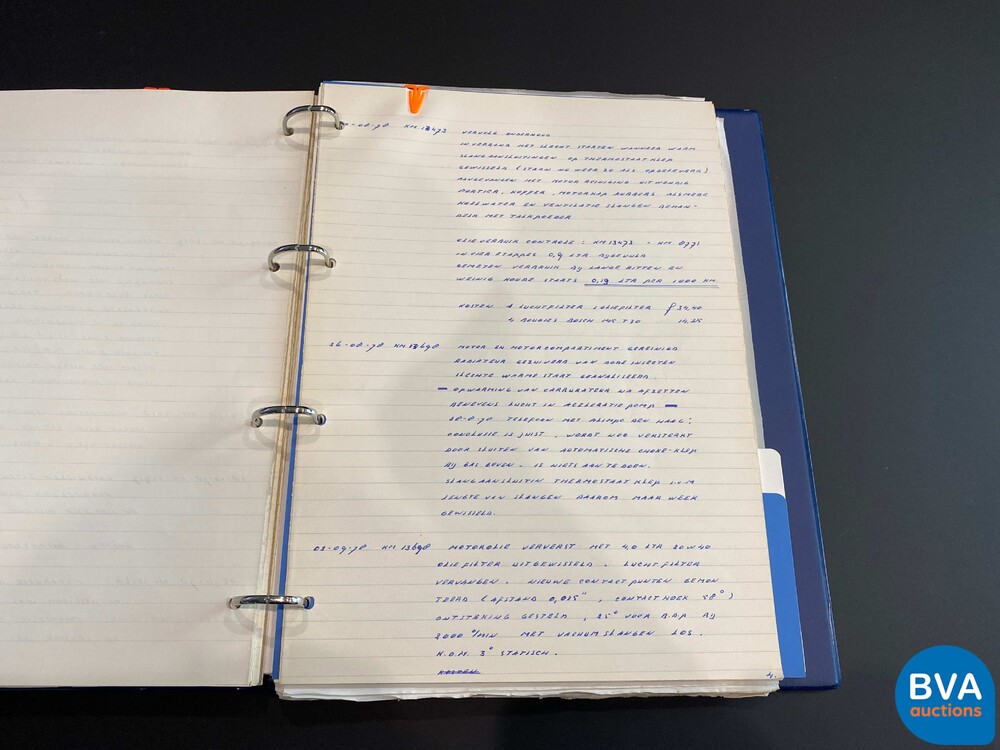 -08-78 KM 13473 VERVOLG ONDERHOUD
IN VERBAND MET SLECHT STARTEN WANNEER WARM
SLANGAANSLUITINGEN OP THERMOSTAATKLEP
GEWISSELD (STAAN NU WEER ZO ALS OPGELEVERD)
MOTOR REINIGING UITWENDIG
PORTIER, KOFFER, MOTORKAP RUBBERS ALSMEDE
KOELWATER EN VENTILATIE SLANGEN BEHAN-
DELD MET TALKPOEDER
OLIEVERBUIK CONTROLE: KM 13473 - KM 8771
IN VIER ETAPPES 0,9 LTR BIJGEVULD
GEMETEN VERBRUIK BIJ LANGE RITTEN EN
WEINIG KOUDE STARTS 0,19 LTR PER 1000 KM.
KOSTEN 1 LUCHTFILTER 1 OLIEFILTER ƒ 34,40
4 BOUGIES BOSCH T30 14,25
26-08-78 KM 13698 MOTOR EN MOTORCOMPARTIMENT GEREINIGD
RADIATEUR GEZUIVERD VAN DODE INSECTEN
SLECHTE WARME START GEANALISEERD.
— OPWARMING VAN CARBURATEUR NA AFZETTEN
BENEVENS LUCHT IN ACCELERATIEPOMP —
28-8-78 TELEFOON MET ALIMPO DEN HAAG:
CONCLUSIE IS JUIST, WORDT NOG VERSTERKT
DOOR SLUITEN VAN AUTOMATISCHE CHOKE-KLEP
BIJ GAS GEVEN. IS NIETS AAN TE DOEN.
SLANGAANSLUITIN THERMOSTAAT KLEP I.V.M
LENGTE VAN SLANGEN DAAROM MAAR WEER
GEWISSELD.
02-09-78 KM 13698 MOTOROLIE VERVERST MET 4,0 LTR 20W40
OLIEFILTER UITGEWISSELD. LUCHTFILTER
VERVANGEN. NIEUWE CONTACTPUNTEN GEMON
TEERD (AFSTAND 0,025", CONTACTHOEK 58°)
ONTSTEKING GESTELD, 25° VOOR B.D.P BIJ
2000 °/MIN MET VACUUMSLANGEN LOS.
K.O.M. 3° STATISCH.
KOSTEN
4.
BVA
auctions